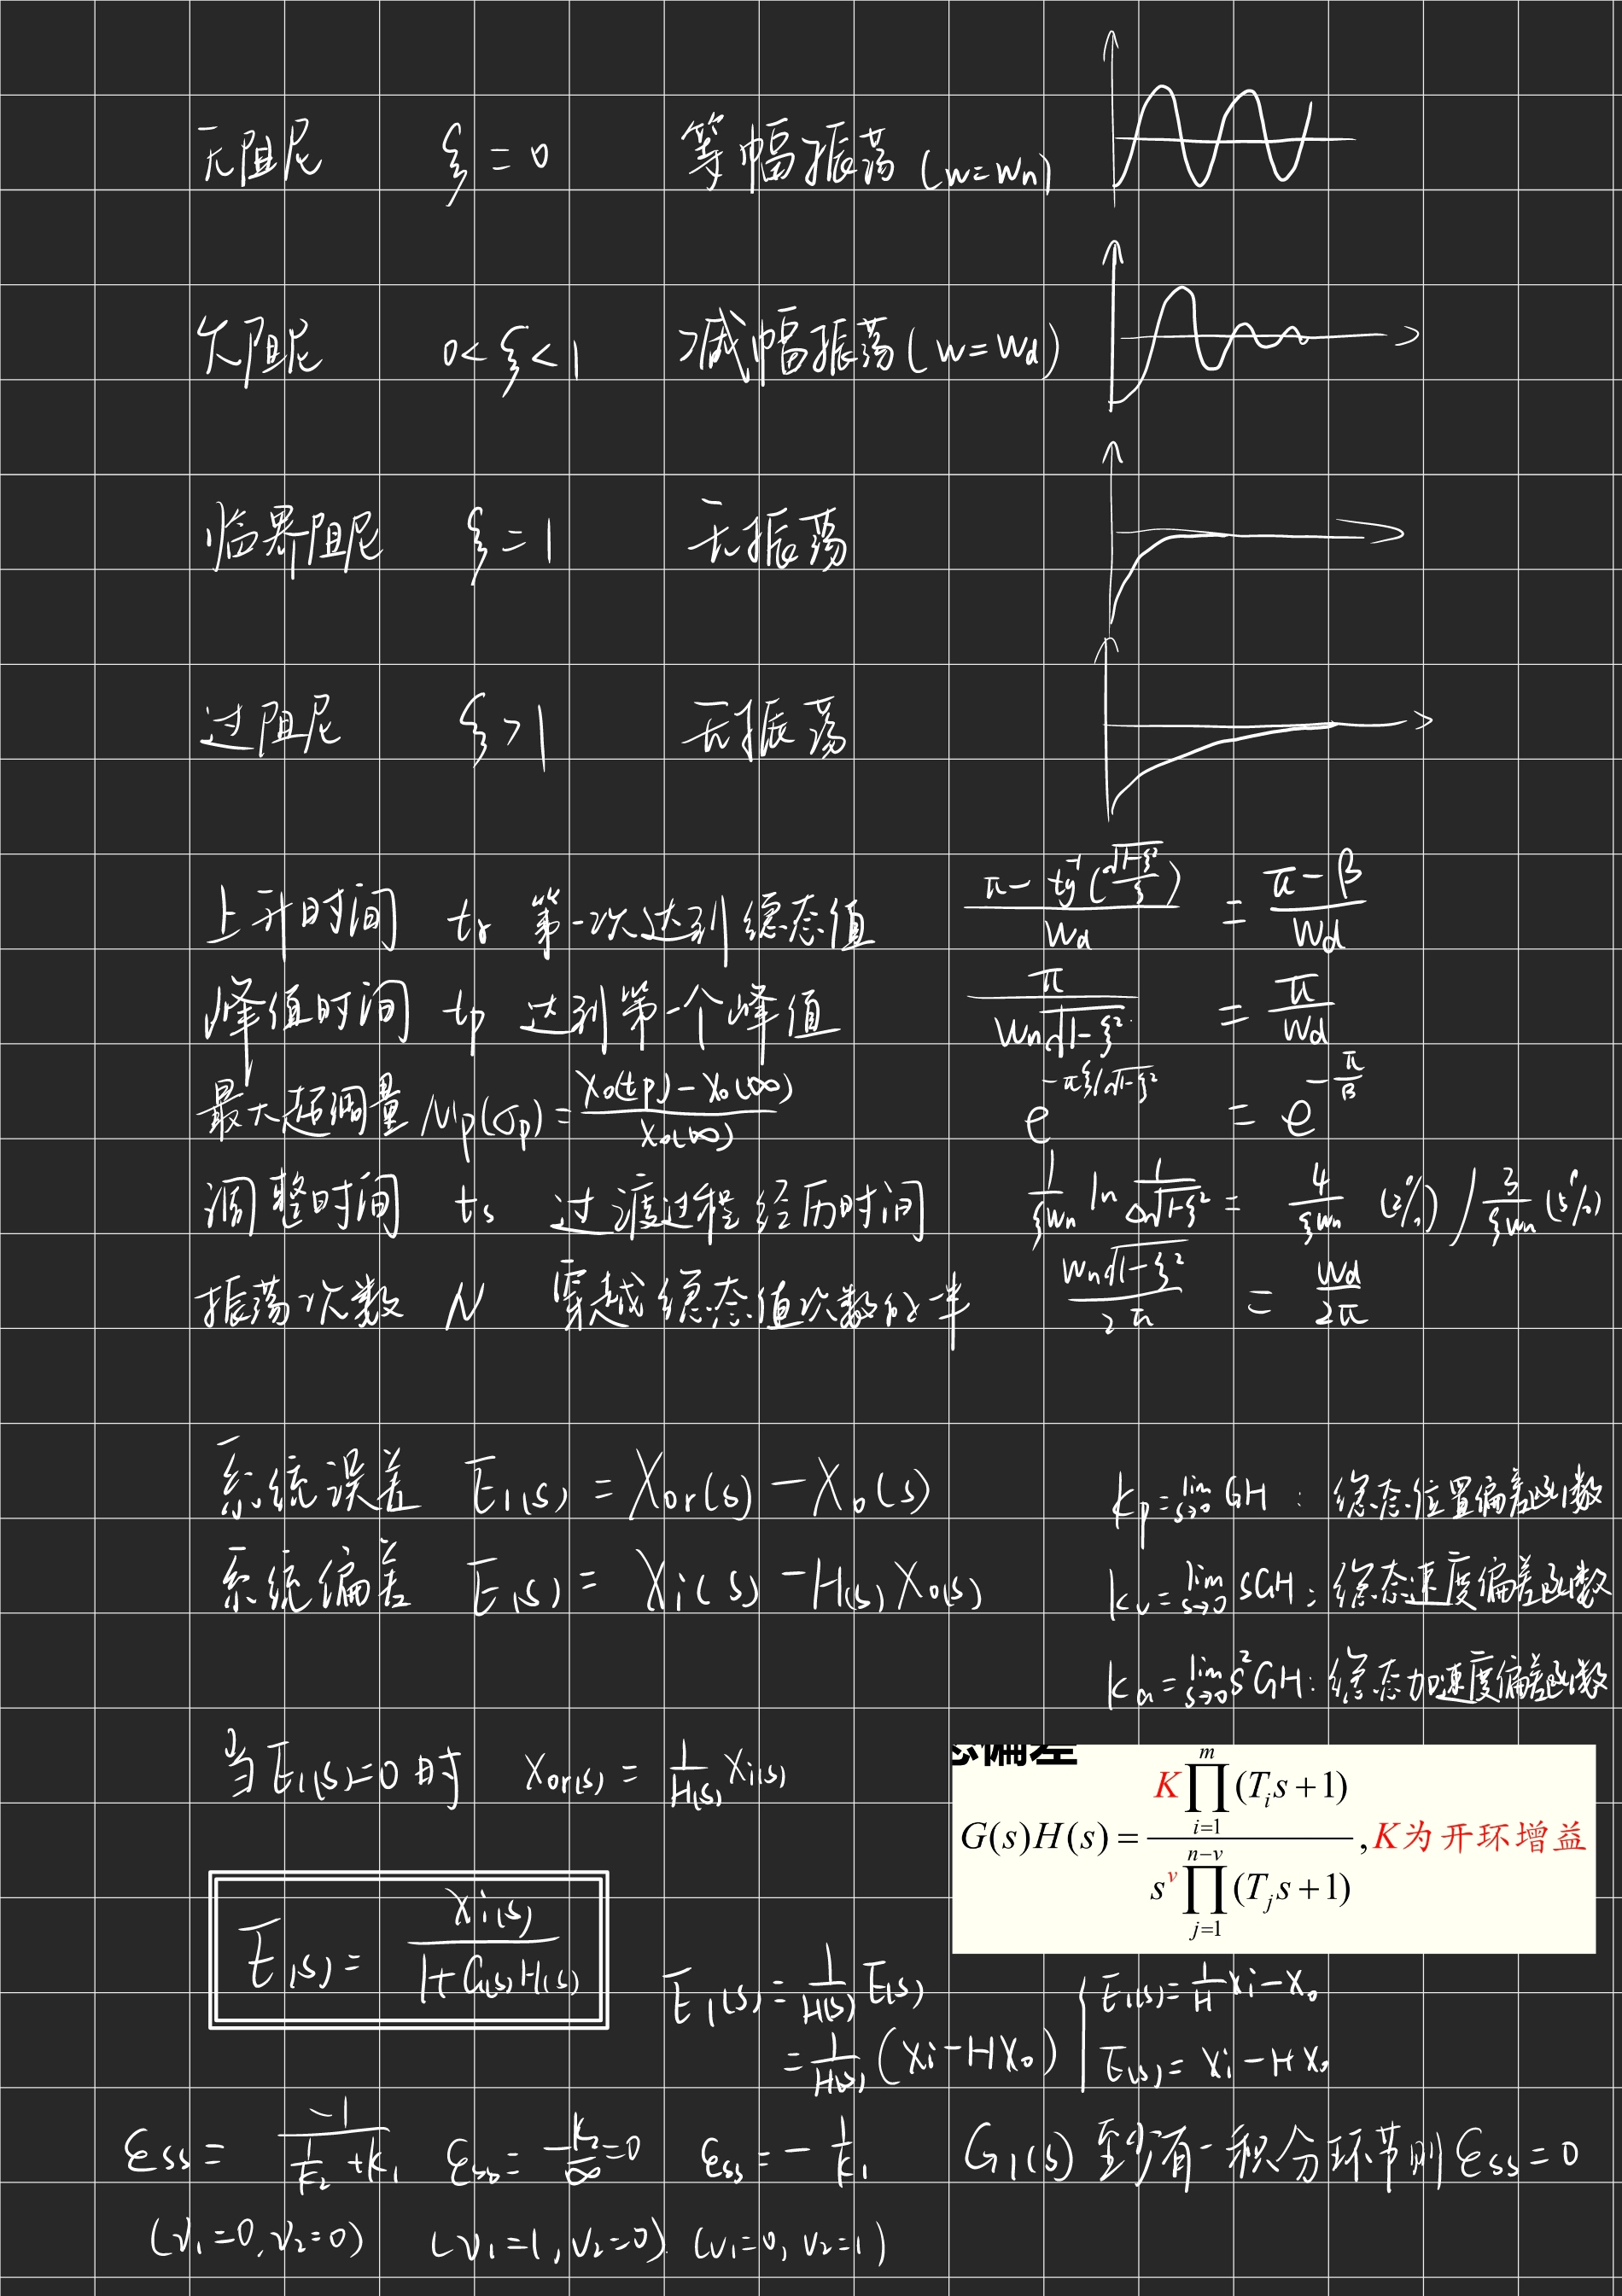 无阻尼 ξ=0 等幅振荡(w=wn)
欠阻尼 0<ξ<1 减幅振荡(w=wd)
临界阻尼 ξ=1 无振荡
过阻尼 ξ>1 无振荡
上升时间 tr 第一次达到稳态值 (π-tg⁻¹(√(1-ξ²)/ξ))/wd = (π-β)/wd
峰值时间 tp 达到第一个峰值 π/(wn√(1-ξ²)) = π/wd
最大超调量 Mp(σp)=(Xo(tp)-Xo(∞))/Xo(∞) e^(-πξ/√(1-ξ²)) = e^(-π/β)
调整时间 ts 过渡过程经历时间 1/(ξwn) ln 1/(Δ√(1-ξ²)) = 4/(ξwn) (2%) / 3/(ξwn) (5%)
振荡次数 N 穿越稳态值次数的一半 wn√(1-ξ²)/2π = wd/2π
系统误差 E1(s) = Xor(s) - Xo(s)
kp = lim s→0 GH : 稳态位置偏差函数
系统偏差 E(s) = Xi(s) - H(s)Xo(s)
kv = lim s→0 sGH : 稳态速度偏差函数
ka = lim s→0 s²GH : 稳态加速度偏差函数
当E1(s)=0时 Xor(s) = 1/H(s) Xi(s)
偏差
G(s)H(s) = K∏_{i=1}^{m}(T_i s+1) / s^v∏_{j=1}^{n-v}(T_j s+1) , K为开环增益
E(s) = Xi(s)/(1+G(s)H(s))
E1(s) = 1/H(s) E(s)
= 1/H(s) (Xi-HXo)
E1(s) = 1/H Xi-Xo
E(s) = Xi-HXo
εss = -1/(1/k2 +k1) εss = -k2/∞=0 εss = -1/k1 G1(s) 至少有一积分环节则 εss=0
(v1=0,v2=0) (v1=1,v2=0) (v1=0,v2=1)